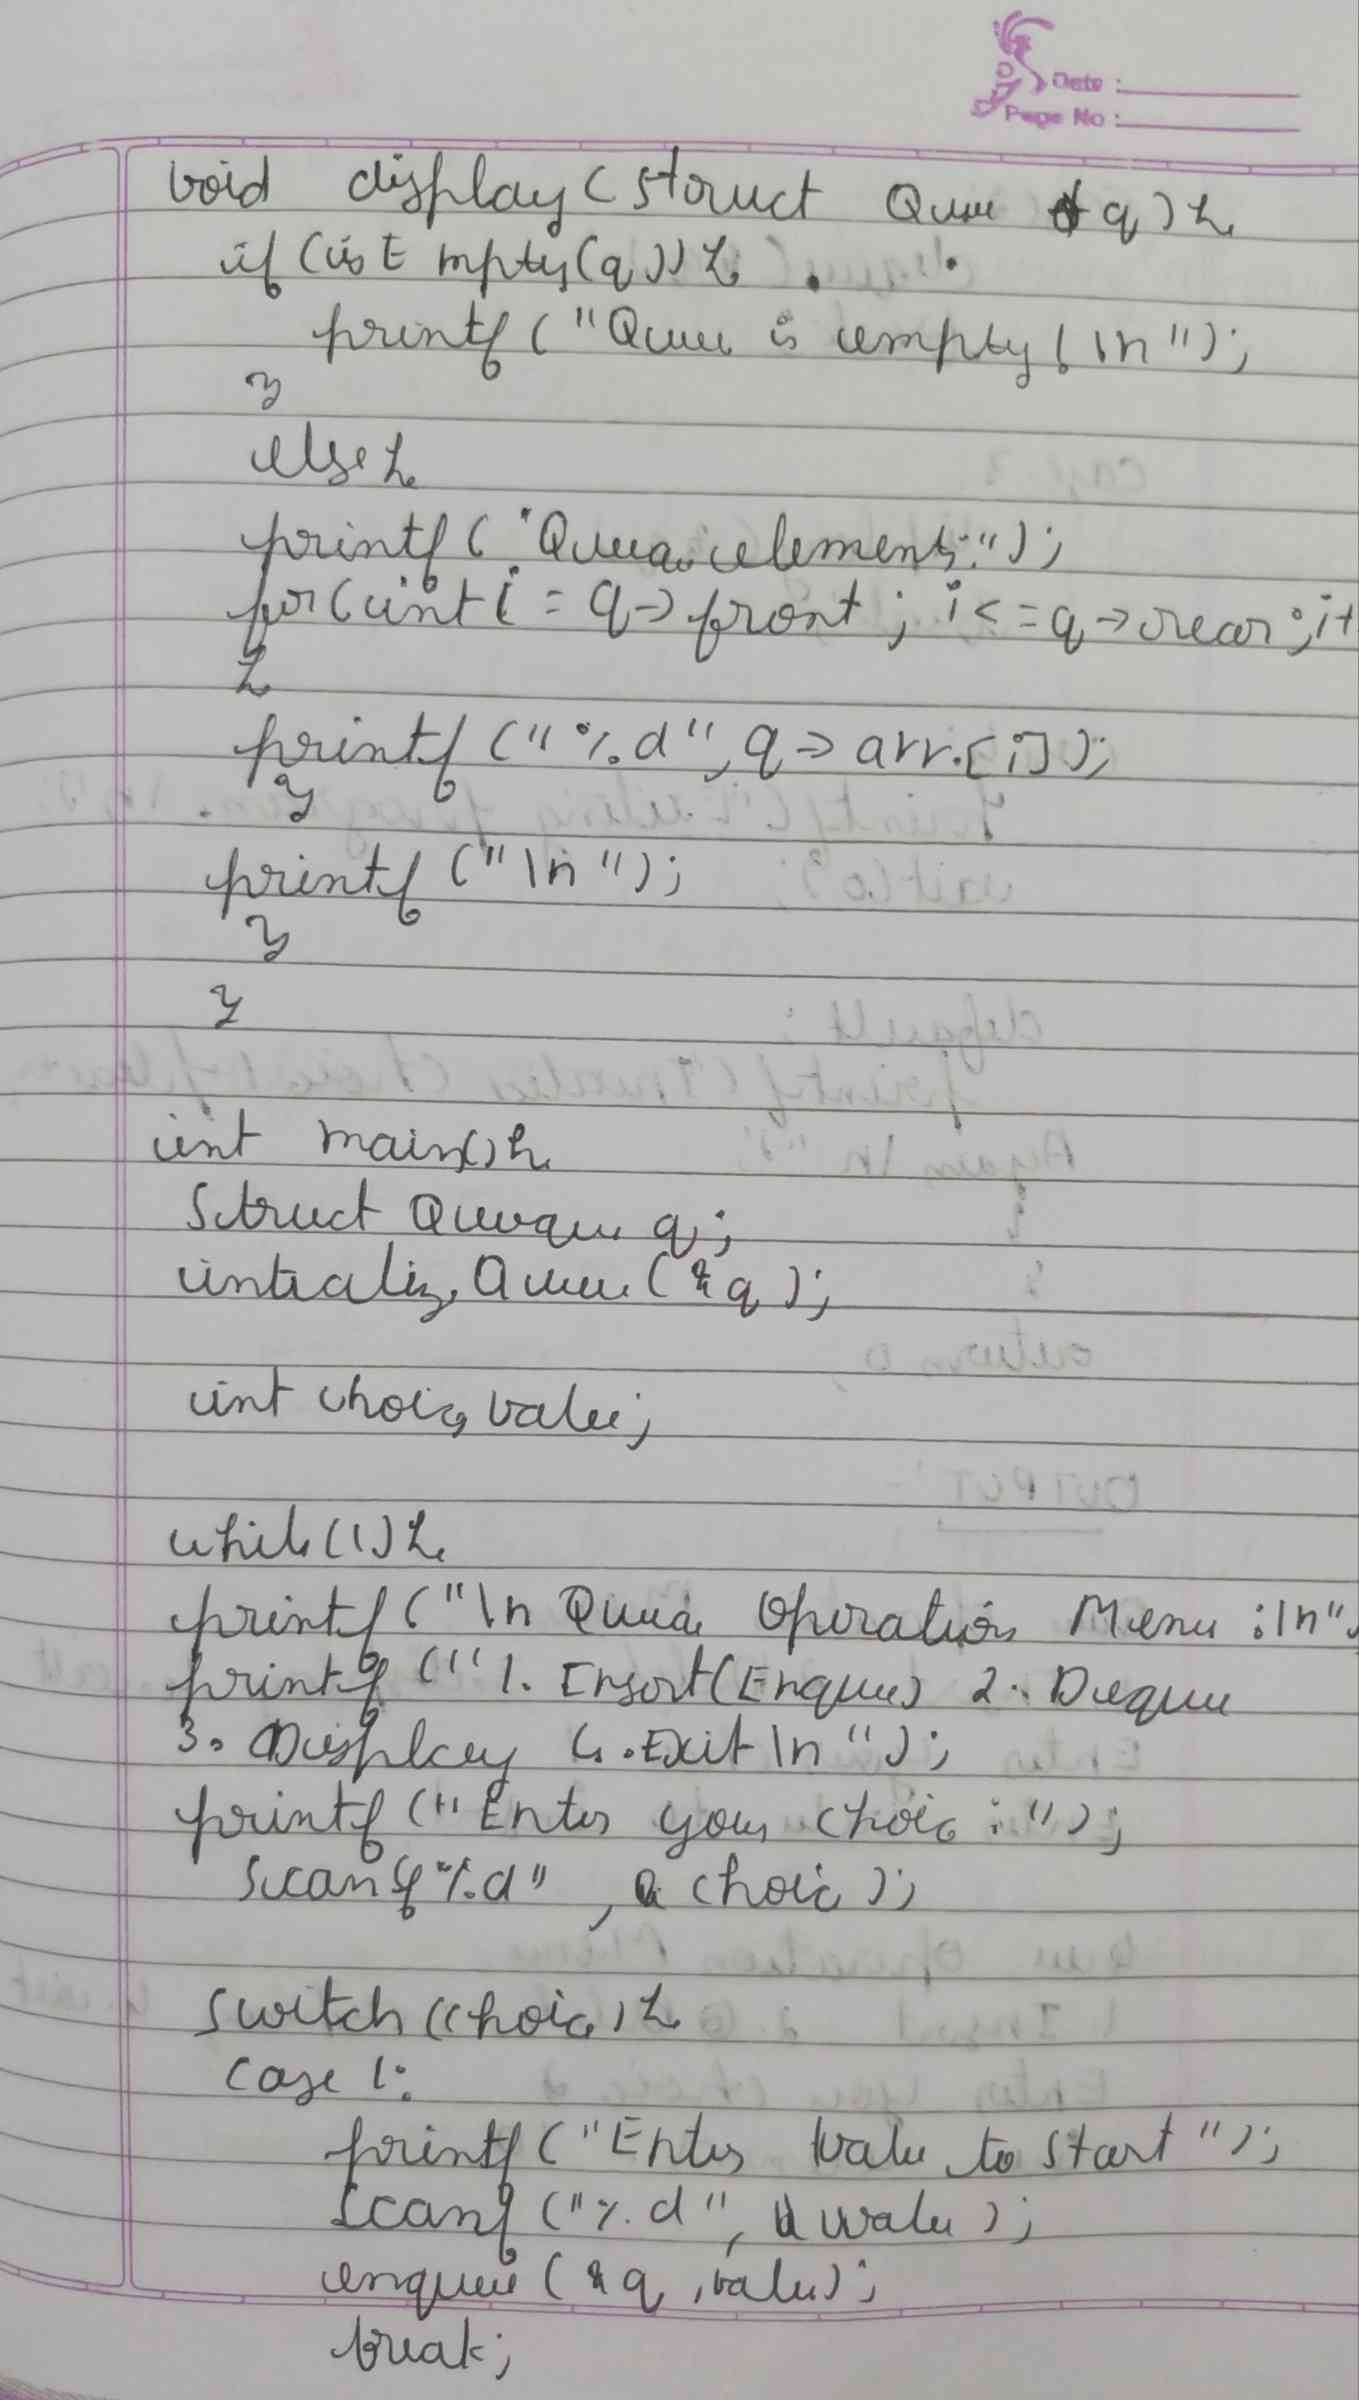 Date :
Page No :
void display(struct Queue *q){
if(isEmpty(q)){
printf("Queue is empty!\n");
}
else{
printf("Queue elements:");
for(int i = q->front; i<=q->rear;i+
{
printf("%d",q->arr.[i]);
}
printf("\n");
}
}
int main(){
struct Queue q;
intializ Queue(&q);
int choice, value;
while(1){
printf("\n Queue Operation Menu :\n"
printf("1. Insert(Enqueue) 2. Dequeue
3. Display 4. Exit\n");
printf("Enter your choice:");
scanf"%d", &choice);
switch(choice){
case 1:
printf("Enter value to start");
scanf("%d", &value);
enqueue(&q, value);
break;